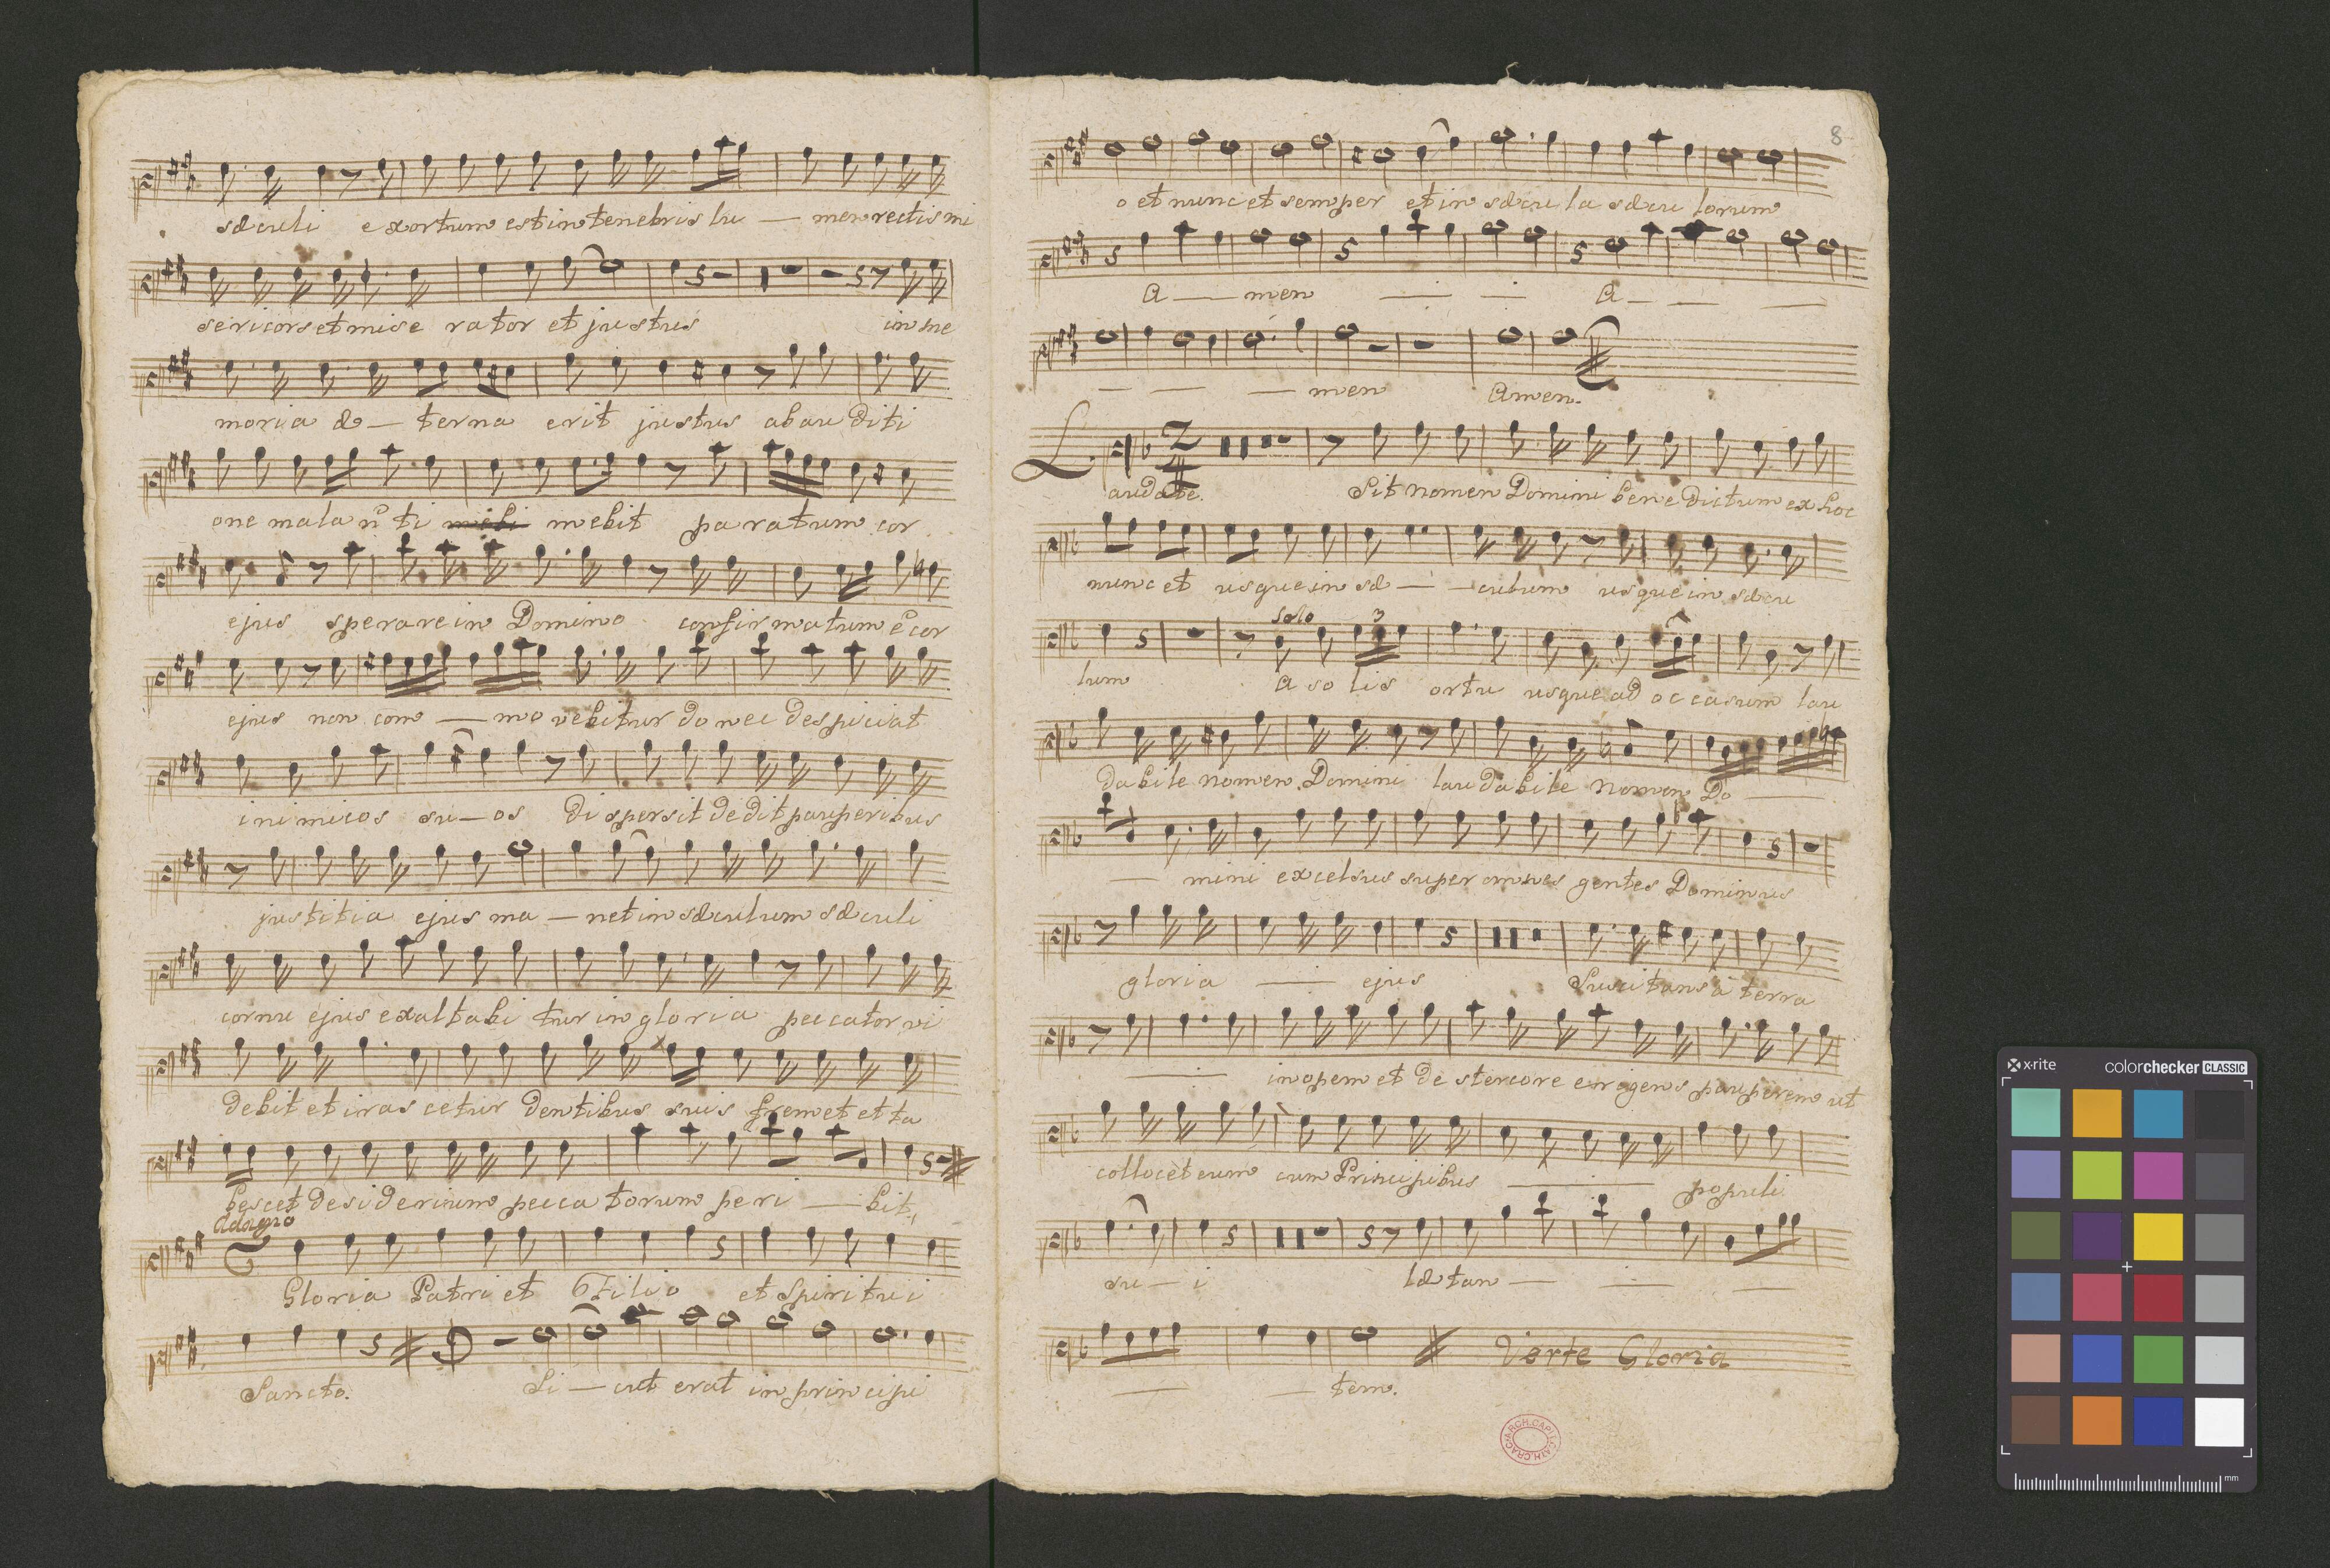 sæculi exortum est in tenebris lu — men rectis mi
sericors et mise rator et justus in me
moria æ — terna erit justus ab au diti
one mala n ti mebit paratum cor
ejus sperare in Domino confirmatum e cor
ejus non com — mo vebitur donec despiciat
inimicos su — os dispersit dedit pauperibus
justitia ejus ma — net in sæculum sæculi
cornu ejus exaltabi tur in gloria peccator vi
debit et iras cetur dentibus suis fremet et ta
bescet desiderium pecca torum peri — bit,
Adagio
Gloria Patri et Filio et Spiritui
Sancto. Si — cut erat in principi
8
o et nunc et semper et in sæcu la sæcu lorum
A — men — — A — — —
— — — men Amen.
L.
audate. Sit nomen Domini bene dictum ex hoc
nunc et usque in sæ — — culum usque in sæcu
Solo 3
lum A so lis ortu usque ad oc casum lau
dabile nomen Domini laudabile nomen Do —
— mini excelsus super omnes gentes Dominus
gloria — ejus Suscitans à terra
— inopem et de stercore erigens pauperem ut
collocet eum cum Principibus — populi
su — i læ tan — — —
Verte Gloria
— — tem.
ARCH.CAPIT.CATH.CRAC
x·rite colorchecker CLASSIC
mm